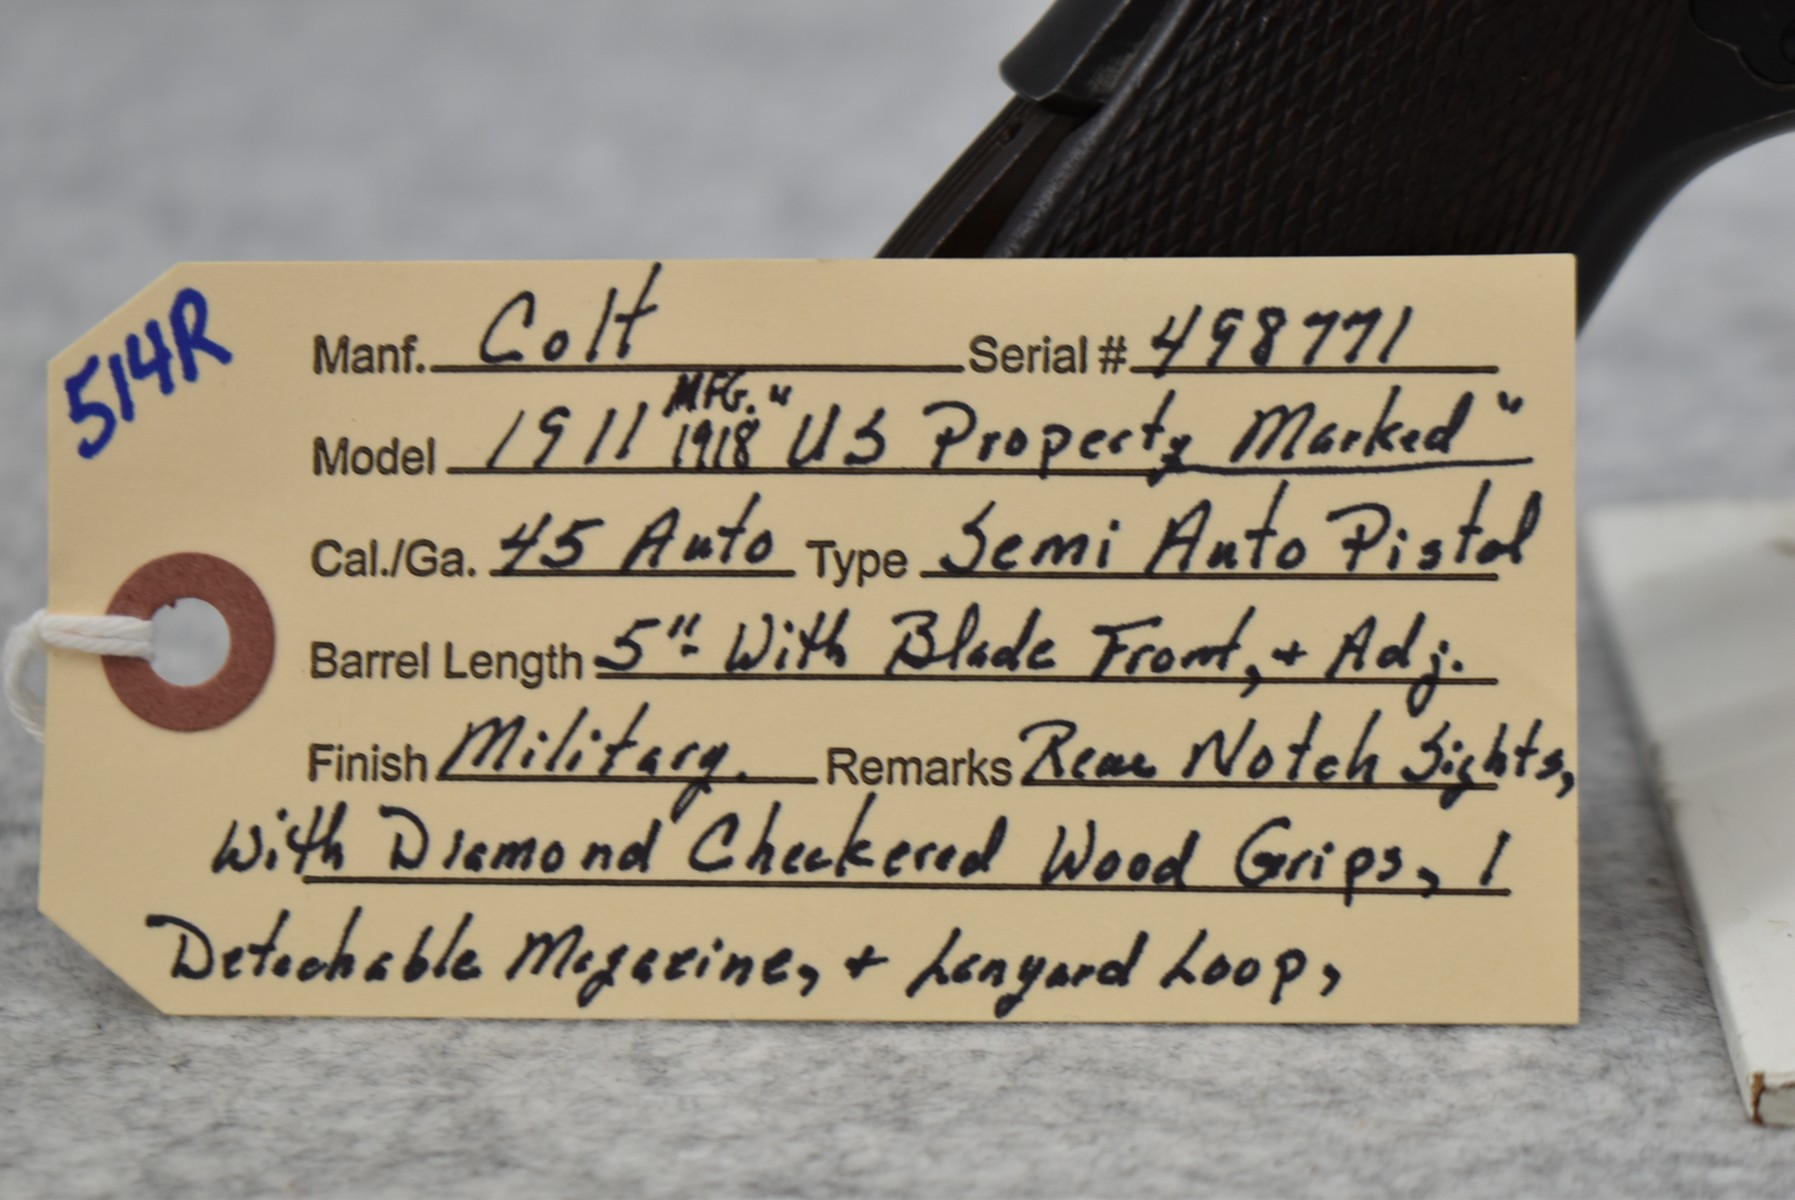 514R
Manf. Colt Serial # 498771
Model 1911 MFG. 1918 "US Property Marked"
Cal./Ga. 45 Auto Type Semi Auto Pistol
Barrel Length 5" With Blade Front, + Adj.
Finish Military. Remarks Rear Notch Sights,
With Diamond Checkered Wood Grips, 1
Detachable Magazine, + Lanyard Loop,